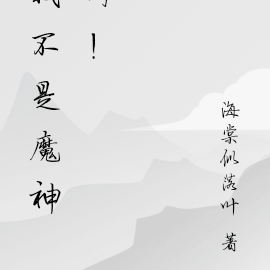 我不是魔神
啊！
海棠似落叶 著